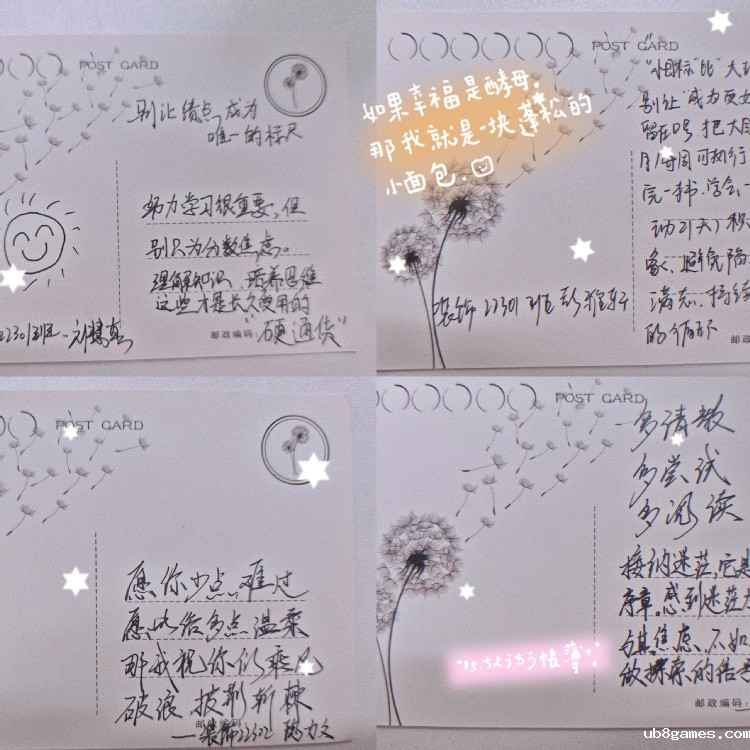 POST CARD
别让绩点成为
唯一的标尺
努力学习很重要,但
别只为分数焦虑。
理解知识、培养思维
这些才是长久受用的
"硬通货"
邮政编码:
POST CARD
如果幸福是酵母.
那我就是一块蓬松的
小面包.
"小目标"比"大
别让"成为
留在口号,把大
月/每周可执行
完一书、学会
动21天)积
象、避免陷
满志、持续
的循环
装饰22301班
邮政
POST CARD
愿你少点难过
愿此后多点温柔
那我祝你们乘风
破浪 披荆斩棘
——装饰22302
邮政编码:
POST CARD
多请教
多尝试
多阅读
接纳迷茫,它是
序章。感到迷茫
与其焦虑、不如
放探索的信号
ちょうちょう帳簿
邮政编码:
ub8games.com